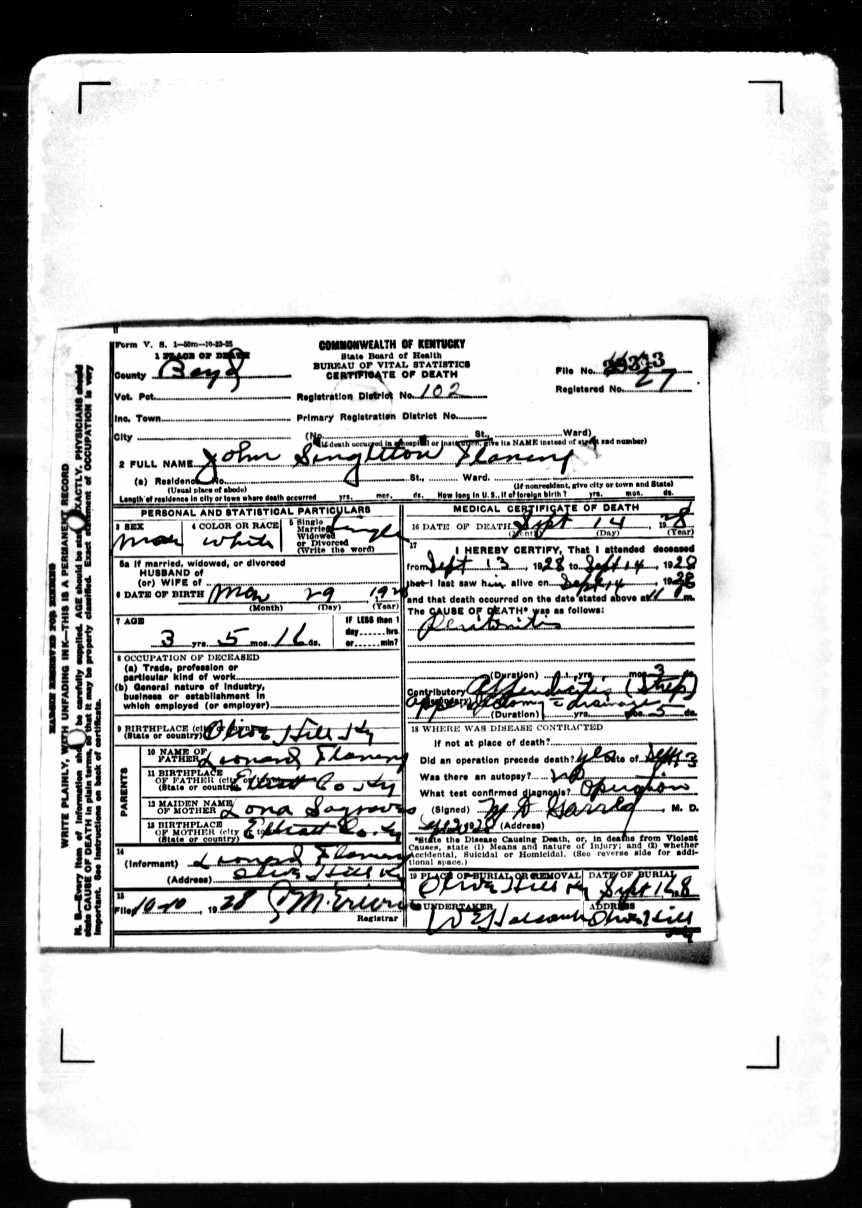 Form V. S. 1—50m—10-23-25
COMMONWEALTH OF KENTUCKY
State Board of Health
BUREAU OF VITAL STATISTICS
CERTIFICATE OF DEATH
1 PLACE OF DEATH
County Boyd
File No.
Registered No. 27
Vot. Pct. Registration District No. 102
Inc. Town Primary Registration District No.
City (No. St., Ward)
(If death occurred in a hospital or institution, give its NAME instead of street and number)
2 FULL NAME John Singleton Flaney
(a) Residence No. St., Ward.
(Usual place of abode) (If nonresident, give city or town and State)
Length of residence in city or town where death occurred yrs. mos. ds. How long in U. S., if of foreign birth? yrs. mos. ds.
PERSONAL AND STATISTICAL PARTICULARS
3 SEX 4 COLOR OR RACE 5 Single Married Widowed or Divorced (Write the word)
white Single
5a If married, widowed, or divorced
HUSBAND of
(or) WIFE of
6 DATE OF BIRTH Mar 29 192
(Month) (Day) (Year)
7 AGE IF LESS than 1
3 yrs. 5 mos. 16 ds. day hrs.
or min?
8 OCCUPATION OF DECEASED
(a) Trade, profession or
particular kind of work
(b) General nature of industry,
business or establishment in
which employed (or employer)
9 BIRTHPLACE (city or town)
(State or country) Olive Hill Ky
PARENTS
10 NAME OF
FATHER Leonard Flaney
11 BIRTHPLACE
OF FATHER (city or town)
(State or country) Elliott Co. Ky
12 MAIDEN NAME
OF MOTHER Lona
13 BIRTHPLACE
OF MOTHER (city or town)
(State or country) Elliott Co. Ky
14
(Informant) Leonard Flaney
(Address) Olive Hill Ky
15
Filed 10-10, 1928
Registrar
MEDICAL CERTIFICATE OF DEATH
16 DATE OF DEATH Sept 14 1928
(Month) (Day) (Year)
17
I HEREBY CERTIFY, That I attended deceased
from Sept 13, 1928 to Sept 14, 1928
that I last saw him alive on Sept 14, 1928
and that death occurred on the date stated above at 11 m.
The CAUSE OF DEATH* was as follows:
Peritonitis
(Duration) yrs. mos. 3 ds.
Contributory Appendicitis (Strep)
(Secondary) drainage
(Duration) yrs. mos. 5 ds.
18 WHERE WAS DISEASE CONTRACTED
If not at place of death?
Did an operation precede death? yes Date of
Was there an autopsy? no
What test confirmed diagnosis? Operation
(Signed) M. D.
(Address)
*State the Disease Causing Death, or, in deaths from Violent
Causes, state (1) Means and nature of Injury; and (2) whether
Accidental, Suicidal or Homicidal. (See reverse side for addi-
tional space.)
19 PLACE OF BURIAL OR REMOVAL DATE OF BURIAL
Olive Hill Ky
20 UNDERTAKER ADDRESS
Olive Hill
Ky
MARGIN RESERVED FOR BINDING
WRITE PLAINLY, WITH UNFADING INK—THIS IS A PERMANENT RECORD
N. B.—Every item of information should be carefully supplied. AGE should be stated EXACTLY. PHYSICIANS should
state CAUSE OF DEATH in plain terms, so that it may be properly classified. Exact statement of OCCUPATION is very
important. See instructions on back of certificate.